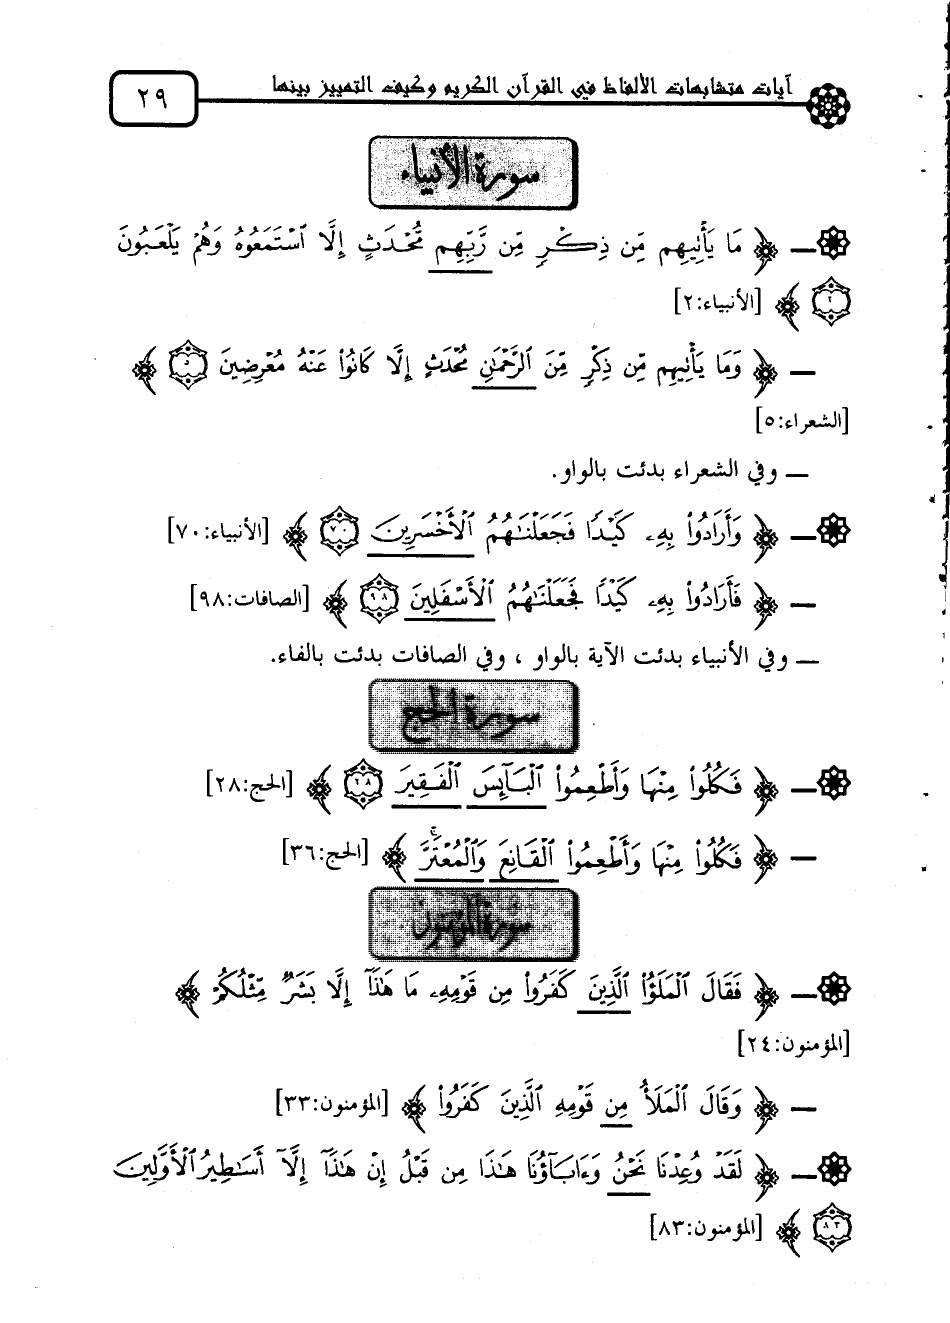 آيات متشابهات الألفاظ في القرآن الكريم وكيف التمييز بينها
٢٩
سورة الأنبياء
— ﴿ مَا يَأْتِيهِم مِّن ذِكْرٍ مِّن رَّبِّهِم مُّحْدَثٍ إِلَّا ٱسْتَمَعُوهُ وَهُمْ يَلْعَبُونَ
٢ ﴾ [الأنبياء:٢]
— ﴿ وَمَا يَأْتِيهِم مِّن ذِكْرٍ مِّنَ ٱلرَّحْمَٰنِ مُحْدَثٍ إِلَّا كَانُوا۟ عَنْهُ مُعْرِضِينَ ٥ ﴾
[الشعراء:٥]
— وفي الشعراء بدئت بالواو.
— ﴿ وَأَرَادُوا۟ بِهِۦ كَيْدًا فَجَعَلْنَٰهُمُ ٱلْأَخْسَرِينَ ٧٠ ﴾ [الأنبياء:٧٠]
— ﴿ فَأَرَادُوا۟ بِهِۦ كَيْدًا فَجَعَلْنَٰهُمُ ٱلْأَسْفَلِينَ ٩٨ ﴾ [الصافات:٩٨]
— وفي الأنبياء بدئت الآية بالواو ، وفي الصافات بدئت بالفاء.
سورة الحج
— ﴿ فَكُلُوا۟ مِنْهَا وَأَطْعِمُوا۟ ٱلْبَآئِسَ ٱلْفَقِيرَ ٢٨ ﴾ [الحج:٢٨]
— ﴿ فَكُلُوا۟ مِنْهَا وَأَطْعِمُوا۟ ٱلْقَانِعَ وَٱلْمُعْتَرَّ ۚ ﴾ [الحج:٣٦]
سورة المؤمنون
— ﴿ فَقَالَ ٱلْمَلَؤُا۟ ٱلَّذِينَ كَفَرُوا۟ مِن قَوْمِهِۦ مَا هَٰذَآ إِلَّا بَشَرٌ مِّثْلُكُمْ ﴾
[المؤمنون:٢٤]
— ﴿ وَقَالَ ٱلْمَلَأُ مِن قَوْمِهِ ٱلَّذِينَ كَفَرُوا۟ ﴾ [المؤمنون:٣٣]
— ﴿ لَقَدْ وُعِدْنَا نَحْنُ وَءَابَآؤُنَا هَٰذَا مِن قَبْلُ إِنْ هَٰذَآ إِلَّآ أَسَٰطِيرُ ٱلْأَوَّلِينَ
٨٣ ﴾ [المؤمنون:٨٣]